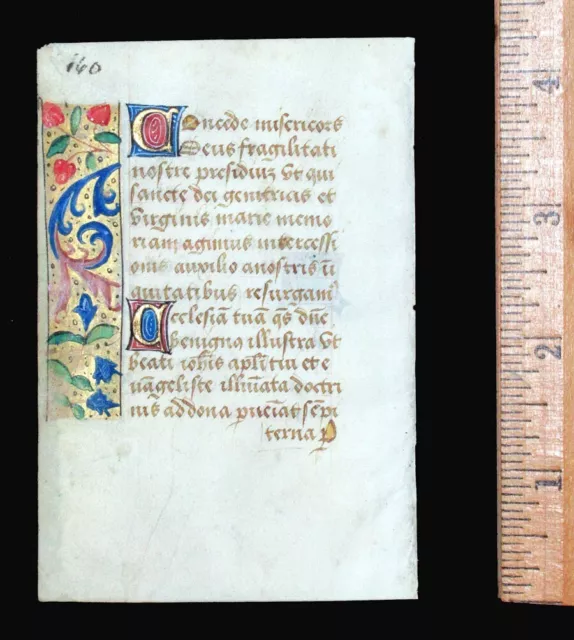 140
Concede misericors
Deus fragilitati
nostre presidiuz Vt qui
sancte dei genitricis et
Virginis marie memo
riam agimus intercessi
onis auxilio a nostris ı̄
iquitatibus resurgam⁹
Ecclesiam tuam qs dn̄e
benigna illustra Vt
beati ioh̄is apl̄i tui et e
vangeliste illūīata doctri
nis ad dona p̄ueniat sēpi
terna p
4
3
2
1